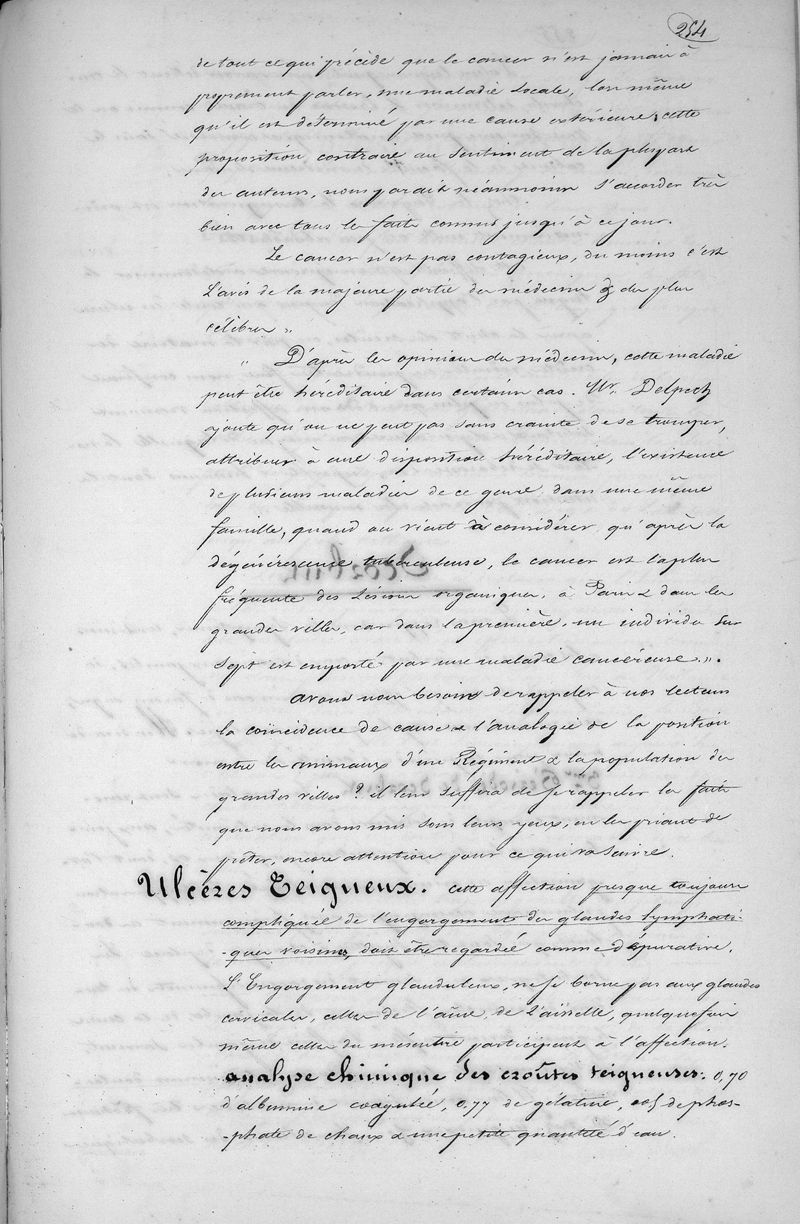 254
de tout ce qui précède que le cancer n'est jamais à
proprement parler, une maladie locale, lors même
qu'il est déterminé par une cause extérieure; cette
proposition, contraire au sentiment de la plupart
des auteurs, nous parait néanmoins s'accorder très
bien avec tous les faits connus jusqu'à ce jour.
Le cancer n'est pas contagieux, du moins c'est
l'avis de la majeure partie des médecins & des plus
célèbres »
" D'après les opinions des médecins, cette maladie
peut être héréditaire dans certains cas. Mr. Delpech
ajoute qu'on ne peut pas sans crainte de se tromper,
attribuer à une disposition héréditaire, l'existence
de plusieurs maladies de ce genre dans une même
famille, quand on vient à considérer qu'après la
dégénérescence tuberculeuse, le cancer est la plus
fréquente des lésions organiques, à Paris & dans les
grandes villes, car dans la première, un individu sur
sept est emporté par une maladie cancéreuse ».
avons nous besoin de rappeler à nos lecteurs
la coïncidence de cause & l'analogie de la position
entre les animaux d'un Régiment & la population des
grandes villes? il leur suffira de se rappeler les faits
que nous avons mis sous leurs yeux, en les priant de
prêter, encore attention pour ce qui va suivre.
Ulcères Teigneux. cette affection presque toujours
compliquée de l'engorgement des glandes lymphati-
-ques voisines, doit être regardée comme dépurative.
L'Engorgement glanduleux, ne se borne pas aux glandes
cervicales, celles de l'aine, de l'aisselle, quelquefois
même celles du mésentère participent à l'affection.
analyse chimique des croûtes teigneuses: 0,70
d'albumine coagulée, 0,77 de gélatine, de phos-
-phate de chaux & une petite quantité d'eau.